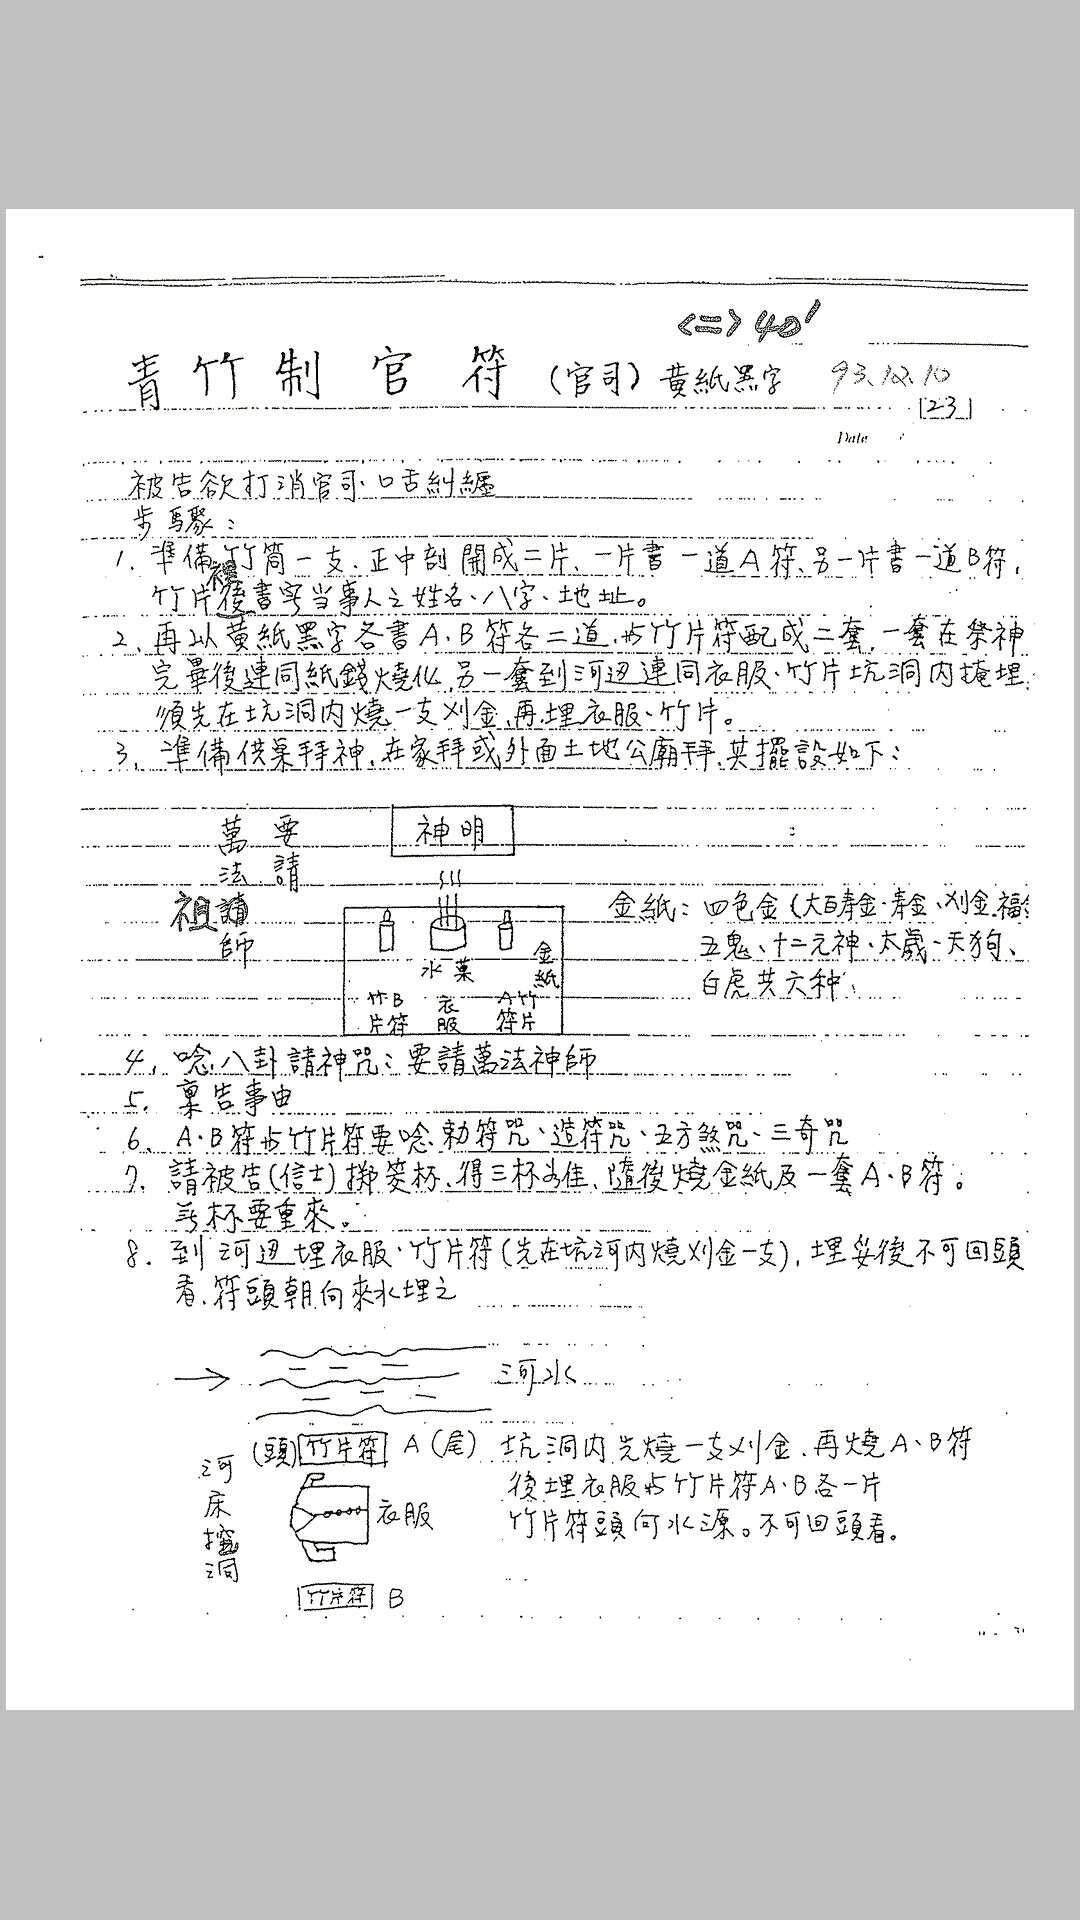 <二> 40'
青竹制官符(官司)黃紙黑字 93.12.10
123
Date
被告欲打消官司.口舌糾纏
步驟:
1. 準備竹筒一支.正中剖開成二片、一片書一道A符、另一片書一道B符,
竹片後書寫当事人之姓名、八字、地址。
2. 再以黃紙黑字各書A.B符各二道,与竹片符配成二套,一套在祭神
完畢後連同紙錢燒化,另一套到河边連同衣服、竹片坑洞內掩埋,
須先在坑洞內燒一支刈金,再埋衣服、竹片。
3. 準備供菓拜神,在家拜或外面土地公廟拜,其擺設如下:
要請
萬法
祖師
神明
水菓
金紙
竹片B符
衣服
A符竹片
金紙:四色金(大百壽金.壽金、刈金.福金
五鬼、十二元神、太歲、天狗、
白虎共六种
4. 唸八卦請神咒:要請萬法神師
5. 稟告事由
6. A.B符与竹片符要唸敕符咒、造符咒、五方煞咒、三奇咒
7. 請被告(信士)擲筊杯、得三杯為佳、隨後燒金紙及一套A.B符。
杯要重來。
8. 到河边埋衣服、竹片符(先在坑河內燒刈金一支),埋妥後不可回頭
看.符頭朝向來水埋之
河水
(頭) 竹片符 A (尾)
衣服
竹片符 B
河床挖洞
坑洞內先燒一支刈金.再燒A.B符
後埋衣服与竹片符A.B各一片
竹片符頭向水源。不可回頭看。